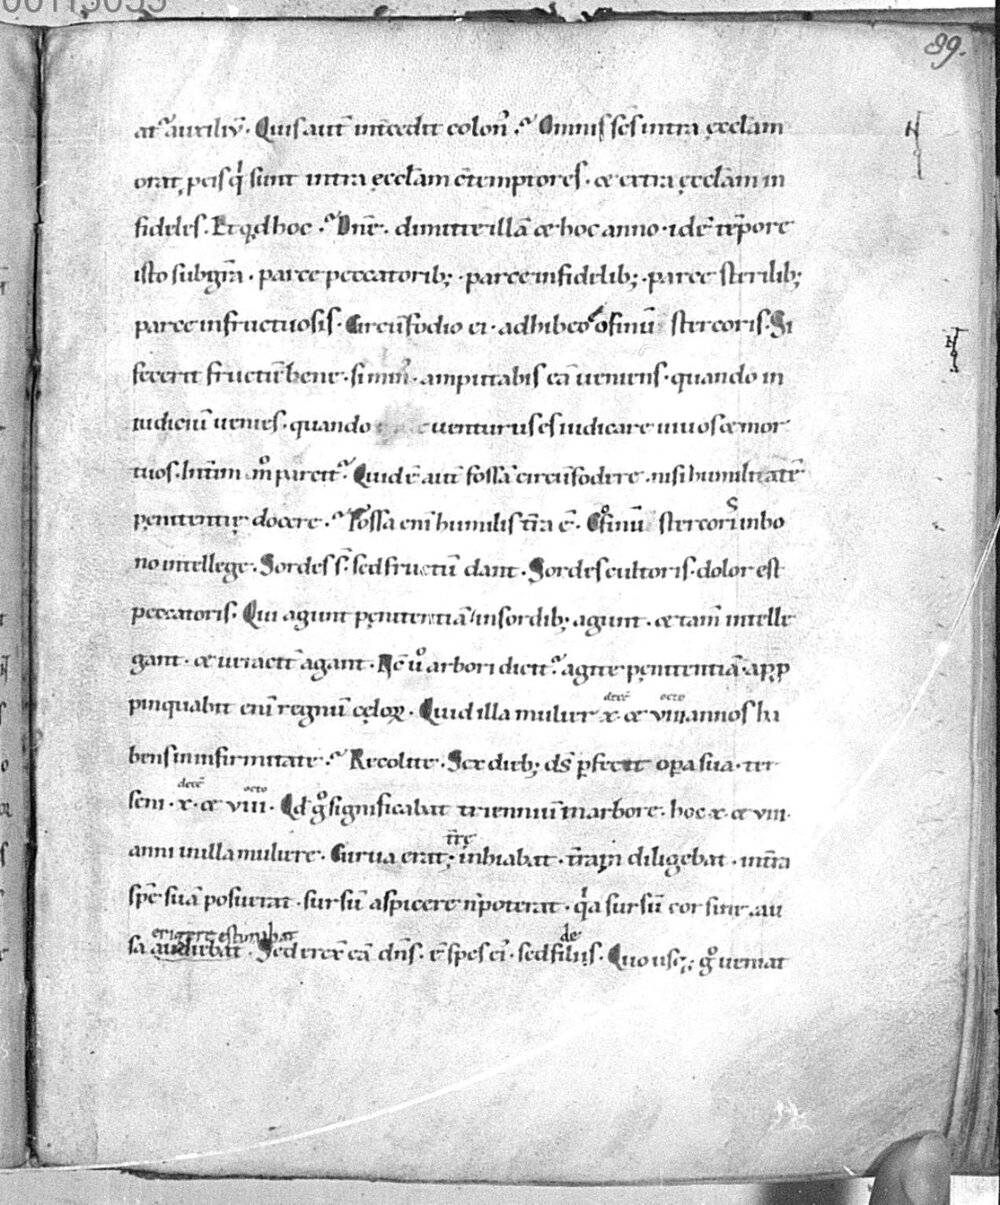 00115055
89.
at᷑ auxiliū. Quis aut̄ intcedit colon᷑. Omnis sc̄s intra ęccl̄am
orat, ꝑ eis q̇ sunt intra ęccl̄am c̄temptores. & extra ęccl̄am in
fideles. Et qd hoc. Dn̄e. dimitte illā & hoc anno. idē tēpore
isto sub gr̄a. parce peccatorib; parce infidelib; parce sterilib;
parce infructuosis. Circūfodio ei. adhibeo cofinū stercoris. Si
fecerit fructū bene. sin min᷒. amputabis eā ueniens. quando in
iudiciū uenies. quando uenturus es iudicare uiuos & mor
tuos. Int̄im m̊ parcit᷑. Quid ē aut̄ fossā circūfodere. nisi humilitatē
pęnitentię docere. Fossa eni humilis t̄ra ē. Cofinū stercoris in bo
no intellege. Sordes s̄. sed fructū dant. Sordes cultoris. dolor est
peccatoris. Qui agunt pęnitentiā in sordib; agunt. & tam̄ intelle
gant. & ueracit̄ agant. Nc̄ ů arbori dicit᷑. agite pęnitentiā. app
pinquabit eni regnū cęloꝝ. Quid illa mulier x. & viii annos ha
decē octo
bens in infirmitate. Recolite. Sex dieb; ds̄ ꝑfecit opera sua. ter
decē octo
seni. x. & viii. Qd g̊ significabat trienniū in arbore. hoc x. & viii.
anni in illa muliere. Curua erat; inhiabat. t̄ram diligebat. in t̄ra
t̄rę
spē suā posuerat. sursū aspicere n̄ poterat. q̇a sursū cor sine cau
erigere estimabat
sa audiebat. Sed erexit eā dn̄s. ē spes ei᷒. sed filiis. Quousq; g̊ ueniat
de